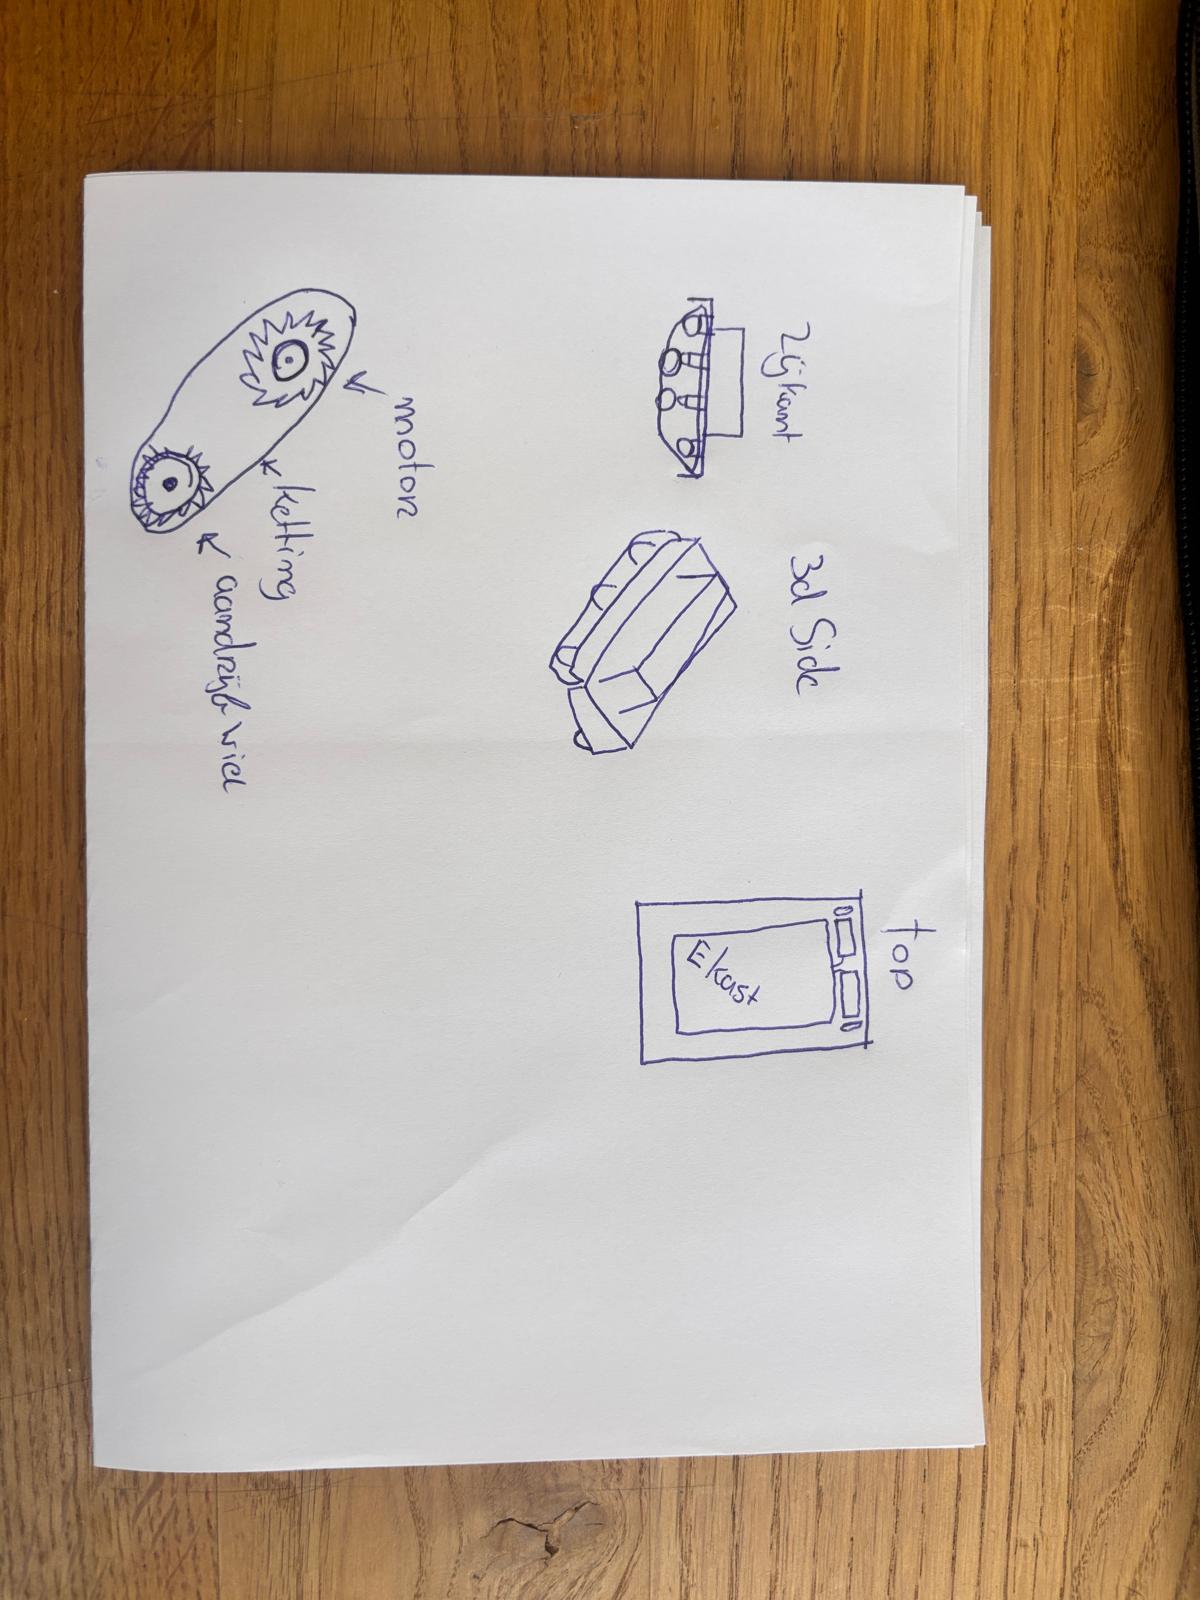 Zijkant
3d Side
top
Ekast
motor
ketting
aandrijf wiel